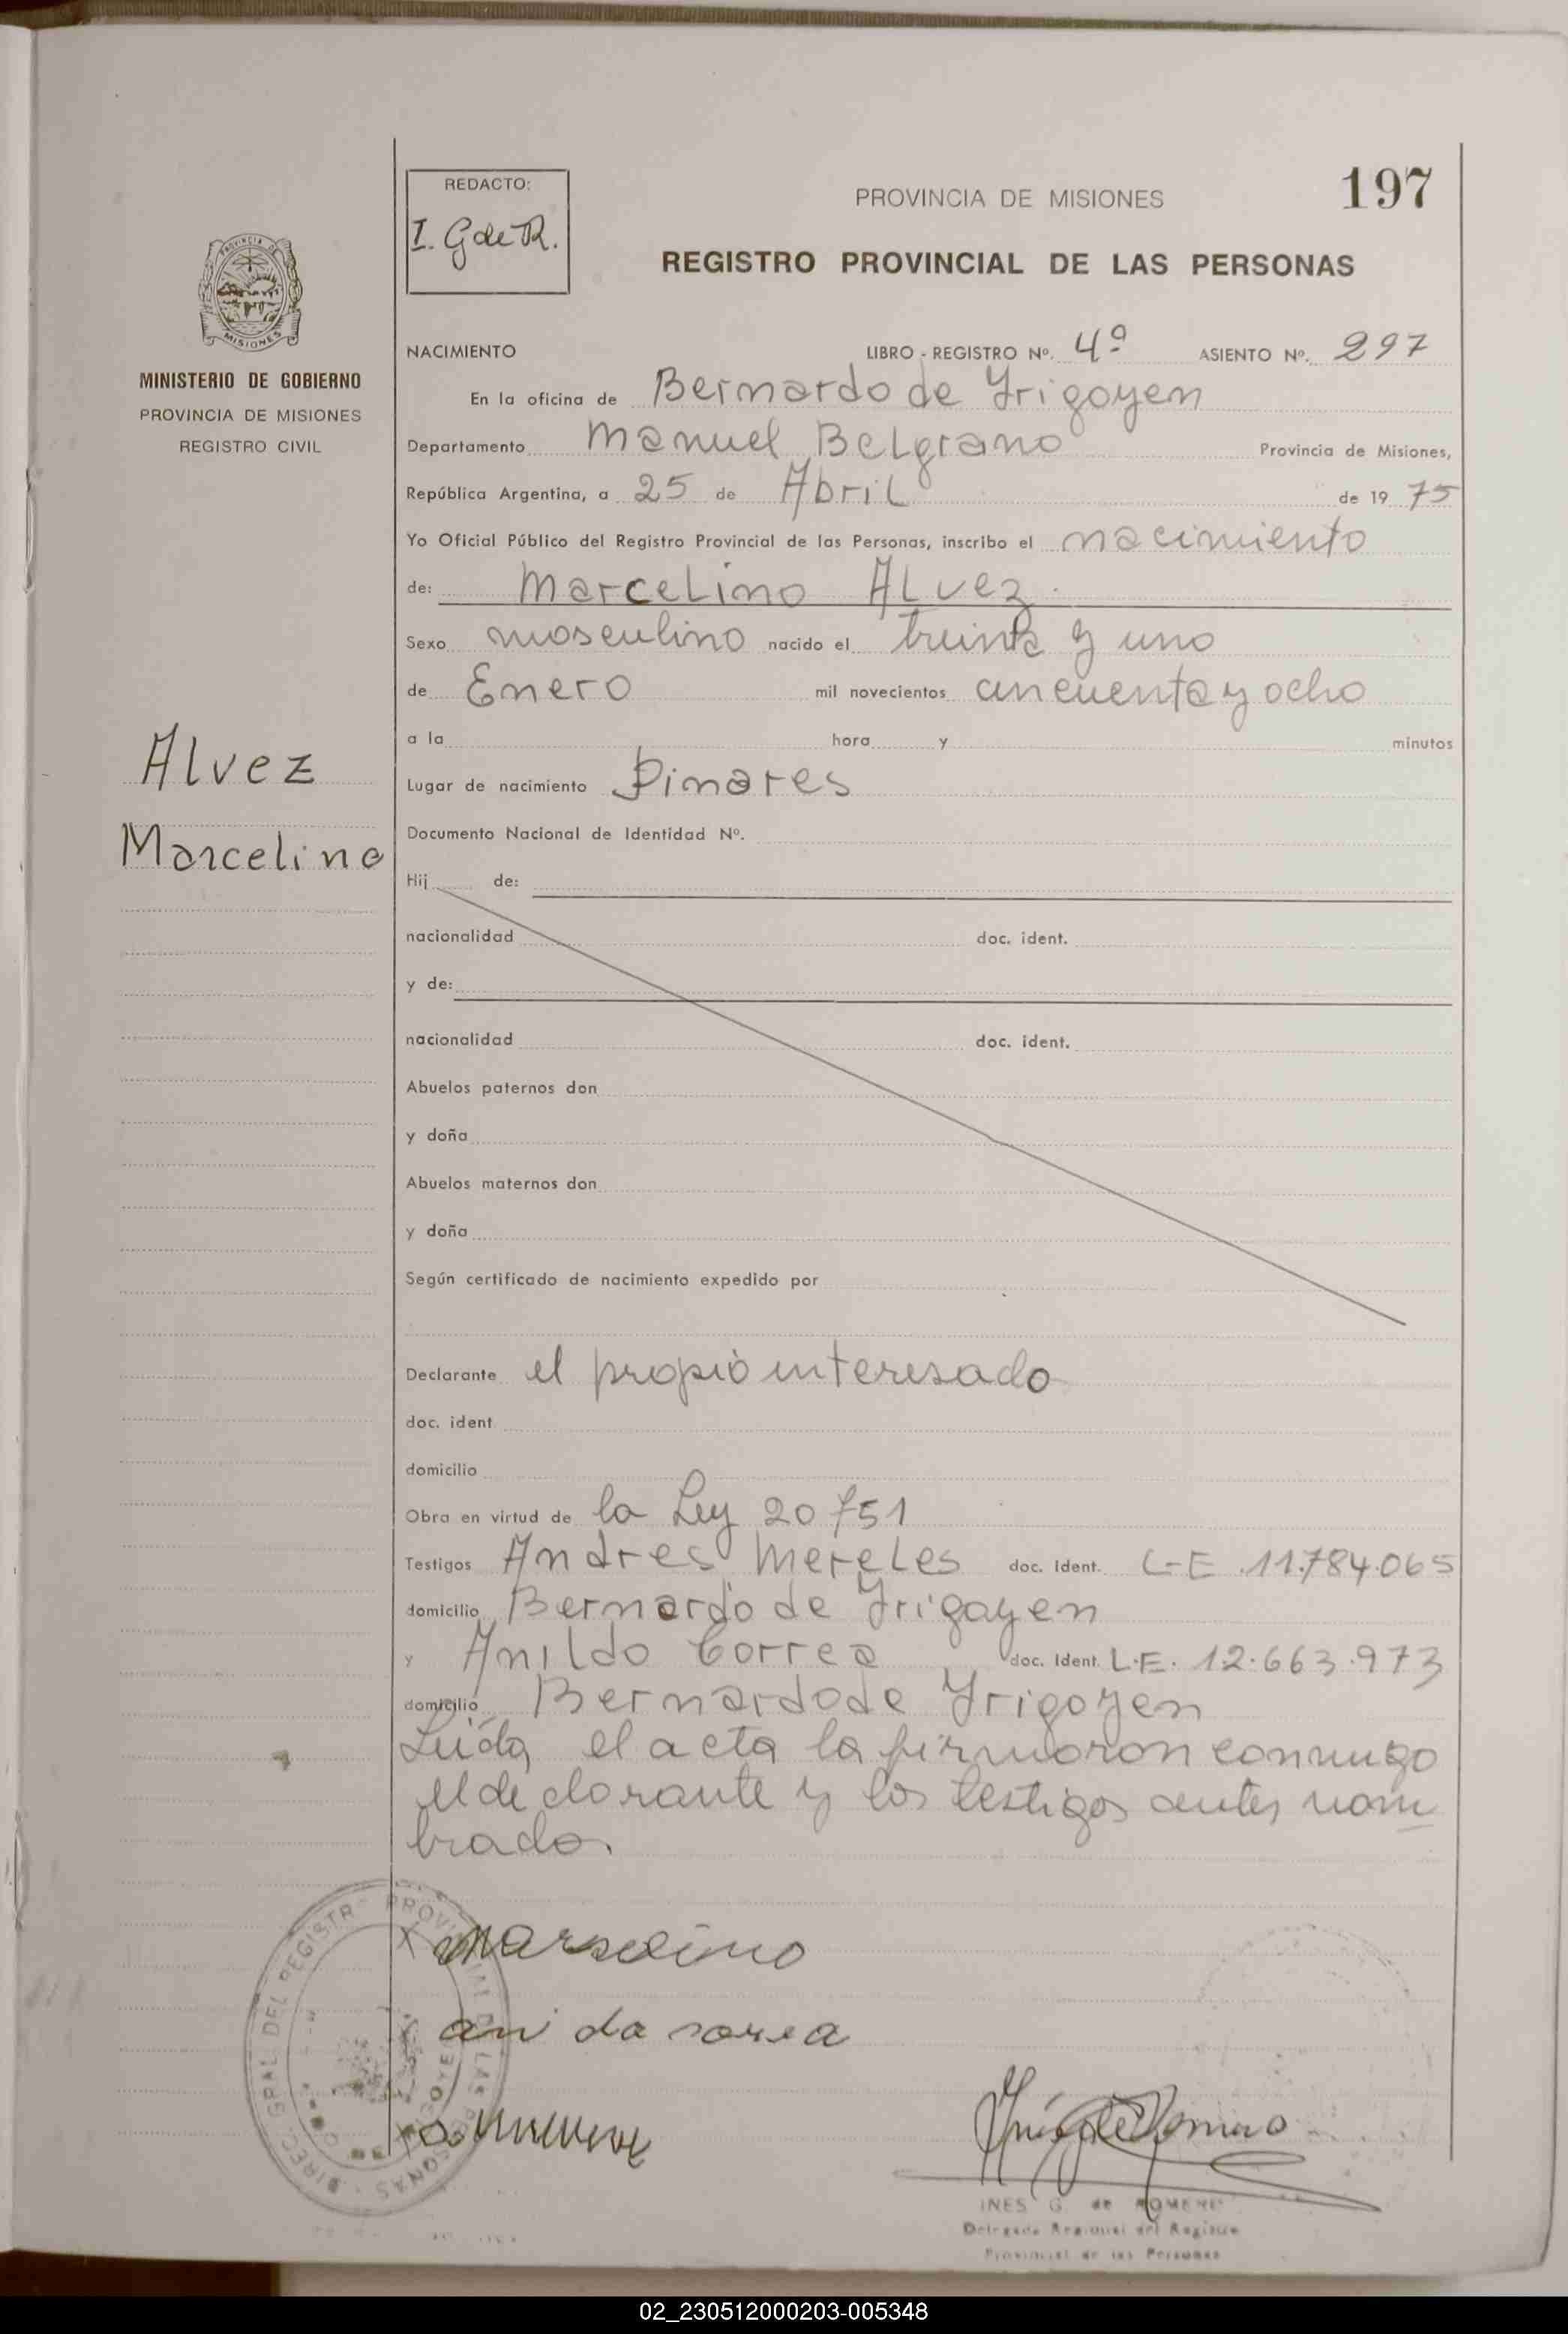 REDACTO:
I. G de R.
PROVINCIA DE MISIONES
197
REGISTRO PROVINCIAL DE LAS PERSONAS
MISIONES
MINISTERIO DE GOBIERNO
PROVINCIA DE MISIONES
REGISTRO CIVIL
NACIMIENTO LIBRO - REGISTRO Nº. 4º ASIENTO Nº. 297
En la oficina de Bernardo de Yrigoyen
Departamento Manuel Belgrano Provincia de Misiones,
República Argentina, a 25 de Abril de 19 75
Yo Oficial Público del Registro Provincial de las Personas, inscribo el nacimiento
de: Marcelino Alvez.
Sexo masculino nacido el treinta y uno
de Enero mil novecientos cincuenta y ocho
a la hora y minutos
Alvez
Marcelino
Lugar de nacimiento Pinares
Documento Nacional de Identidad Nº.
Hij de:
nacionalidad doc. ident.
y de:
nacionalidad doc. ident.
Abuelos paternos don
y doña
Abuelos maternos don
y doña
Según certificado de nacimiento expedido por
Declarante el propio interesado
doc. ident
domicilio
Obra en virtud de la Ley 20751
Testigos Andres Mereles doc. ident. L-E .11.784.065
domicilio Bernardo de Yrigoyen
y Anildo Correa doc. ident. L.E. 12.663.973
domicilio Bernardo de Yrigoyen
Leida el acta la firmaron conmigo
el declarante y los testigos antes nom
brado.
x marselino
ani da correa
INES G. de ROMERO
Delegada Regional del Registro
Provincial de las Personas
DIREC. GRAL. DEL REGISTRO PROVINCIAL DE LAS PERSONAS
02_230512000203-005348